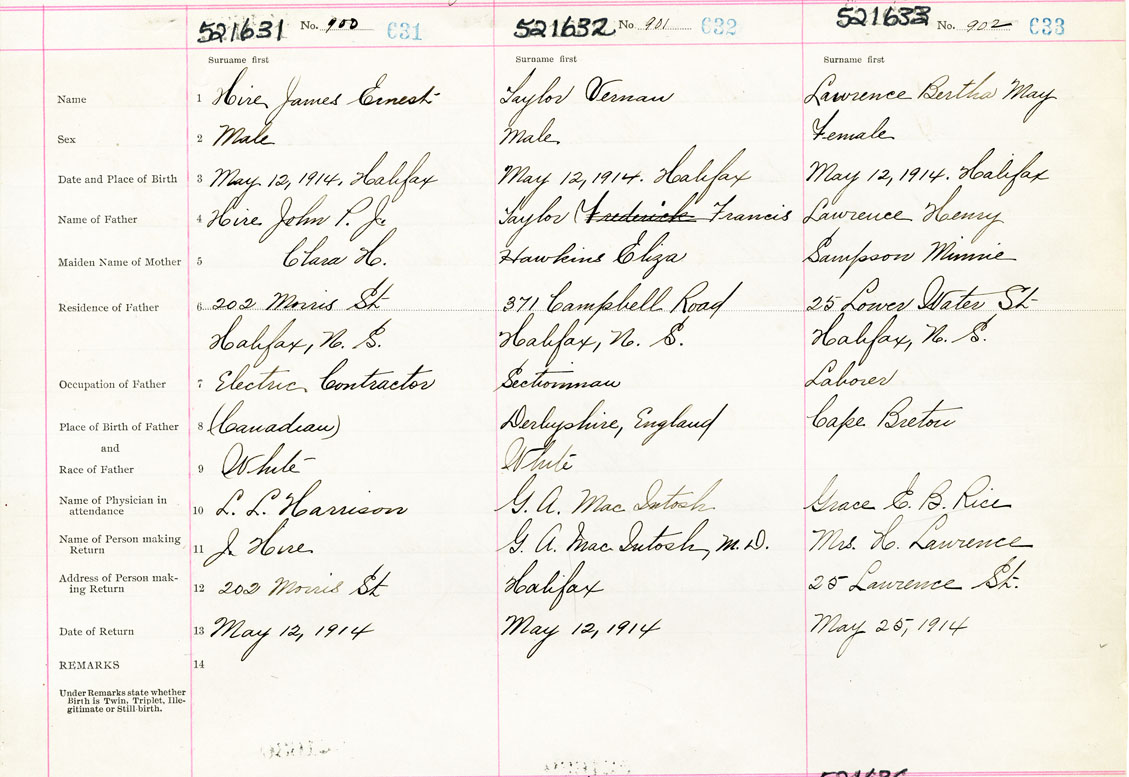 521631 No. 900 631 521632 No. 901 632 521633 No. 902 633
Surname first Surname first Surname first
Name 1 Hire, James Ernest Taylor Vernau Lawrence Bertha May
Sex 2 Male Male Female
Date and Place of Birth 3 May 12, 1914. Halifax May 12, 1914. Halifax May 12, 1914. Halifax
Name of Father 4 Hire John P. Jr Taylor (Frederick Francis Lawrence Henry
Maiden Name of Mother 5 Clara H. Hawkins Eliza Sampson Minnie
Residence of Father 6 202 Morris St 371 Campbell Road 25 Lower Water St
Halifax, N. S. Halifax, N. S. Halifax, N. S.
Occupation of Father 7 Electric Contractor Sectionman Laborer
Place of Birth of Father 8 (Canadian) Derbyshire, England Cape Breton
and
Race of Father 9 White White
Name of Physician in
attendance 10 L. L. Harrison G. A. Mac Intosh Grace E. B. Rice
Name of Person making
Return 11 J. Hire G. A. Mac Intosh, M.D. Mrs. H. Lawrence
Address of Person mak-
ing Return 12 202 Morris St Halifax 25 Lawrence St.
Date of Return 13 May 12, 1914 May 12, 1914 May 25, 1914
REMARKS 14
Under Remarks state whether
Birth is Twin, Triplet, Ille-
gitimate or Still-birth.